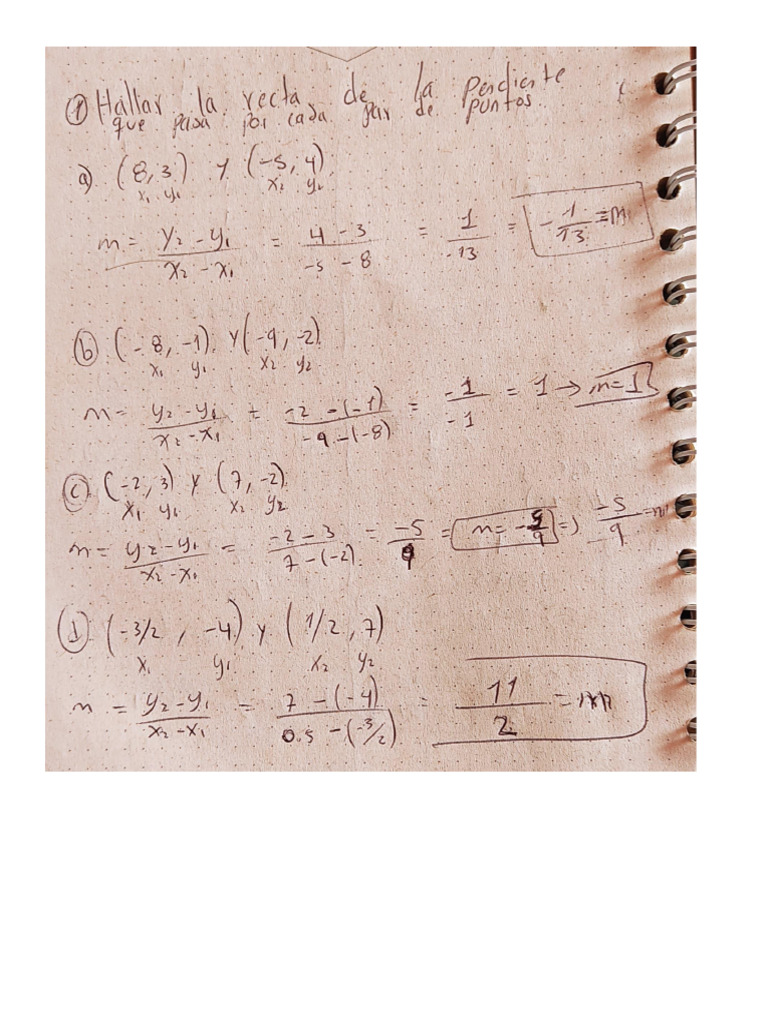 ① Hallar la recta de la pendiente
que pasa por cada par de puntos.
a) (8,3) y (-5,4)
x₁ y₁ x₂ y₂
m = y₂ - y₁ / x₂ - x₁ = 4 - 3 / -5 - 8 = 1 / -13 = -1/13 = m
ⓑ (-8, -1) y (-9, -2)
x₁ y₁ x₂ y₂
m = y₂ - y₁ / x₂ - x₁ = -2 - (-1) / -9 - (-8) = -1 / -1 = 1 → m = 1
ⓒ (-2, 3) y (7, -2)
x₁ y₁ x₂ y₂
m = y₂ - y₁ / x₂ - x₁ = -2 - 3 / 7 - (-2) = -5 / 9 = m = -5/9 => -5 / 9 = m
ⓓ (-3/2, -4) y (1/2, 7)
x₁ y₁ x₂ y₂
m = y₂ - y₁ / x₂ - x₁ = 7 - (-4) / 0.5 - (-3/2) = 11 / 2 = m